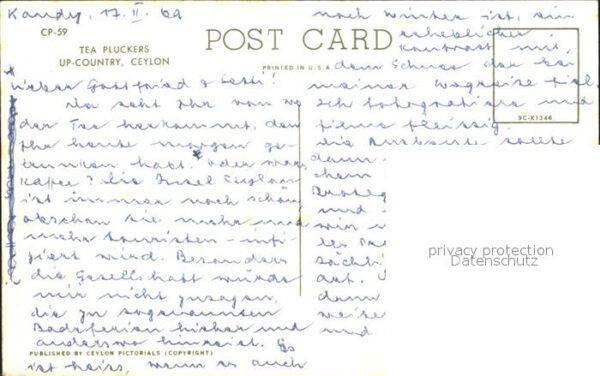 Kandy, 17. II. 69
CP-59
TEA PLUCKERS
UP-COUNTRY, CEYLON
POST CARD
PRINTED IN U.S.A.
SC-X1346
Lieber Gottfried &
Da seht Ihr von wo
der Tee herkommt, den
Ihr heute morgen ge-
trunken habt. * oder war's
Kaffee? Die Insel Ceylon
ist immer noch schön
obschon sie mehr und
mehr touristen - infi-
ziert wird. Besonders
die Gesellschaft würde
mir nicht zusagen,
die zu sogenannten
Badeferien hieher und
anderswo hinreist. Es
ist heiss, wenn es auch
PUBLISHED BY CEYLON PICTORIALS (COPYRIGHT)
noch Winter ist, ein
erheblicher
Kontrast mit
dem Schnee der bei
meiner Wegreise fiel.
Ich fotografiere und
filme fleissig.
die Ausbeute sollte
dann
chem
und
wir
les
sächli
art.
dann
weise
und
privacy protection
Datenschutz